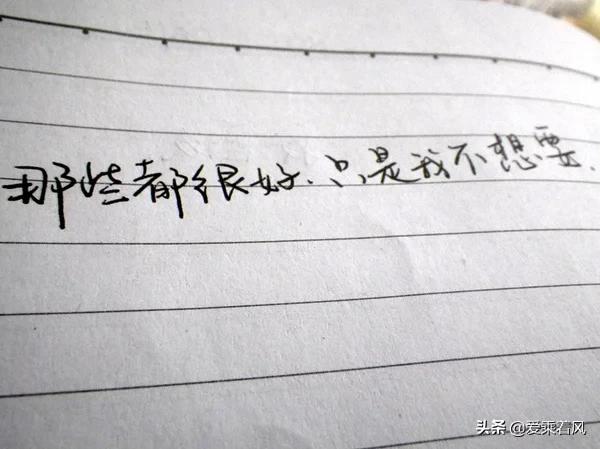 那些都很好.只是我不想要.
头条 @爱乘右风